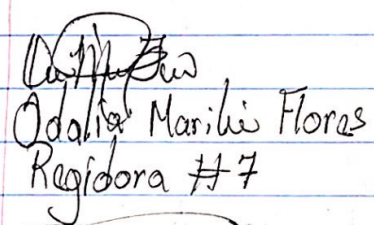 Odalia Marili Flores
Regidora #7